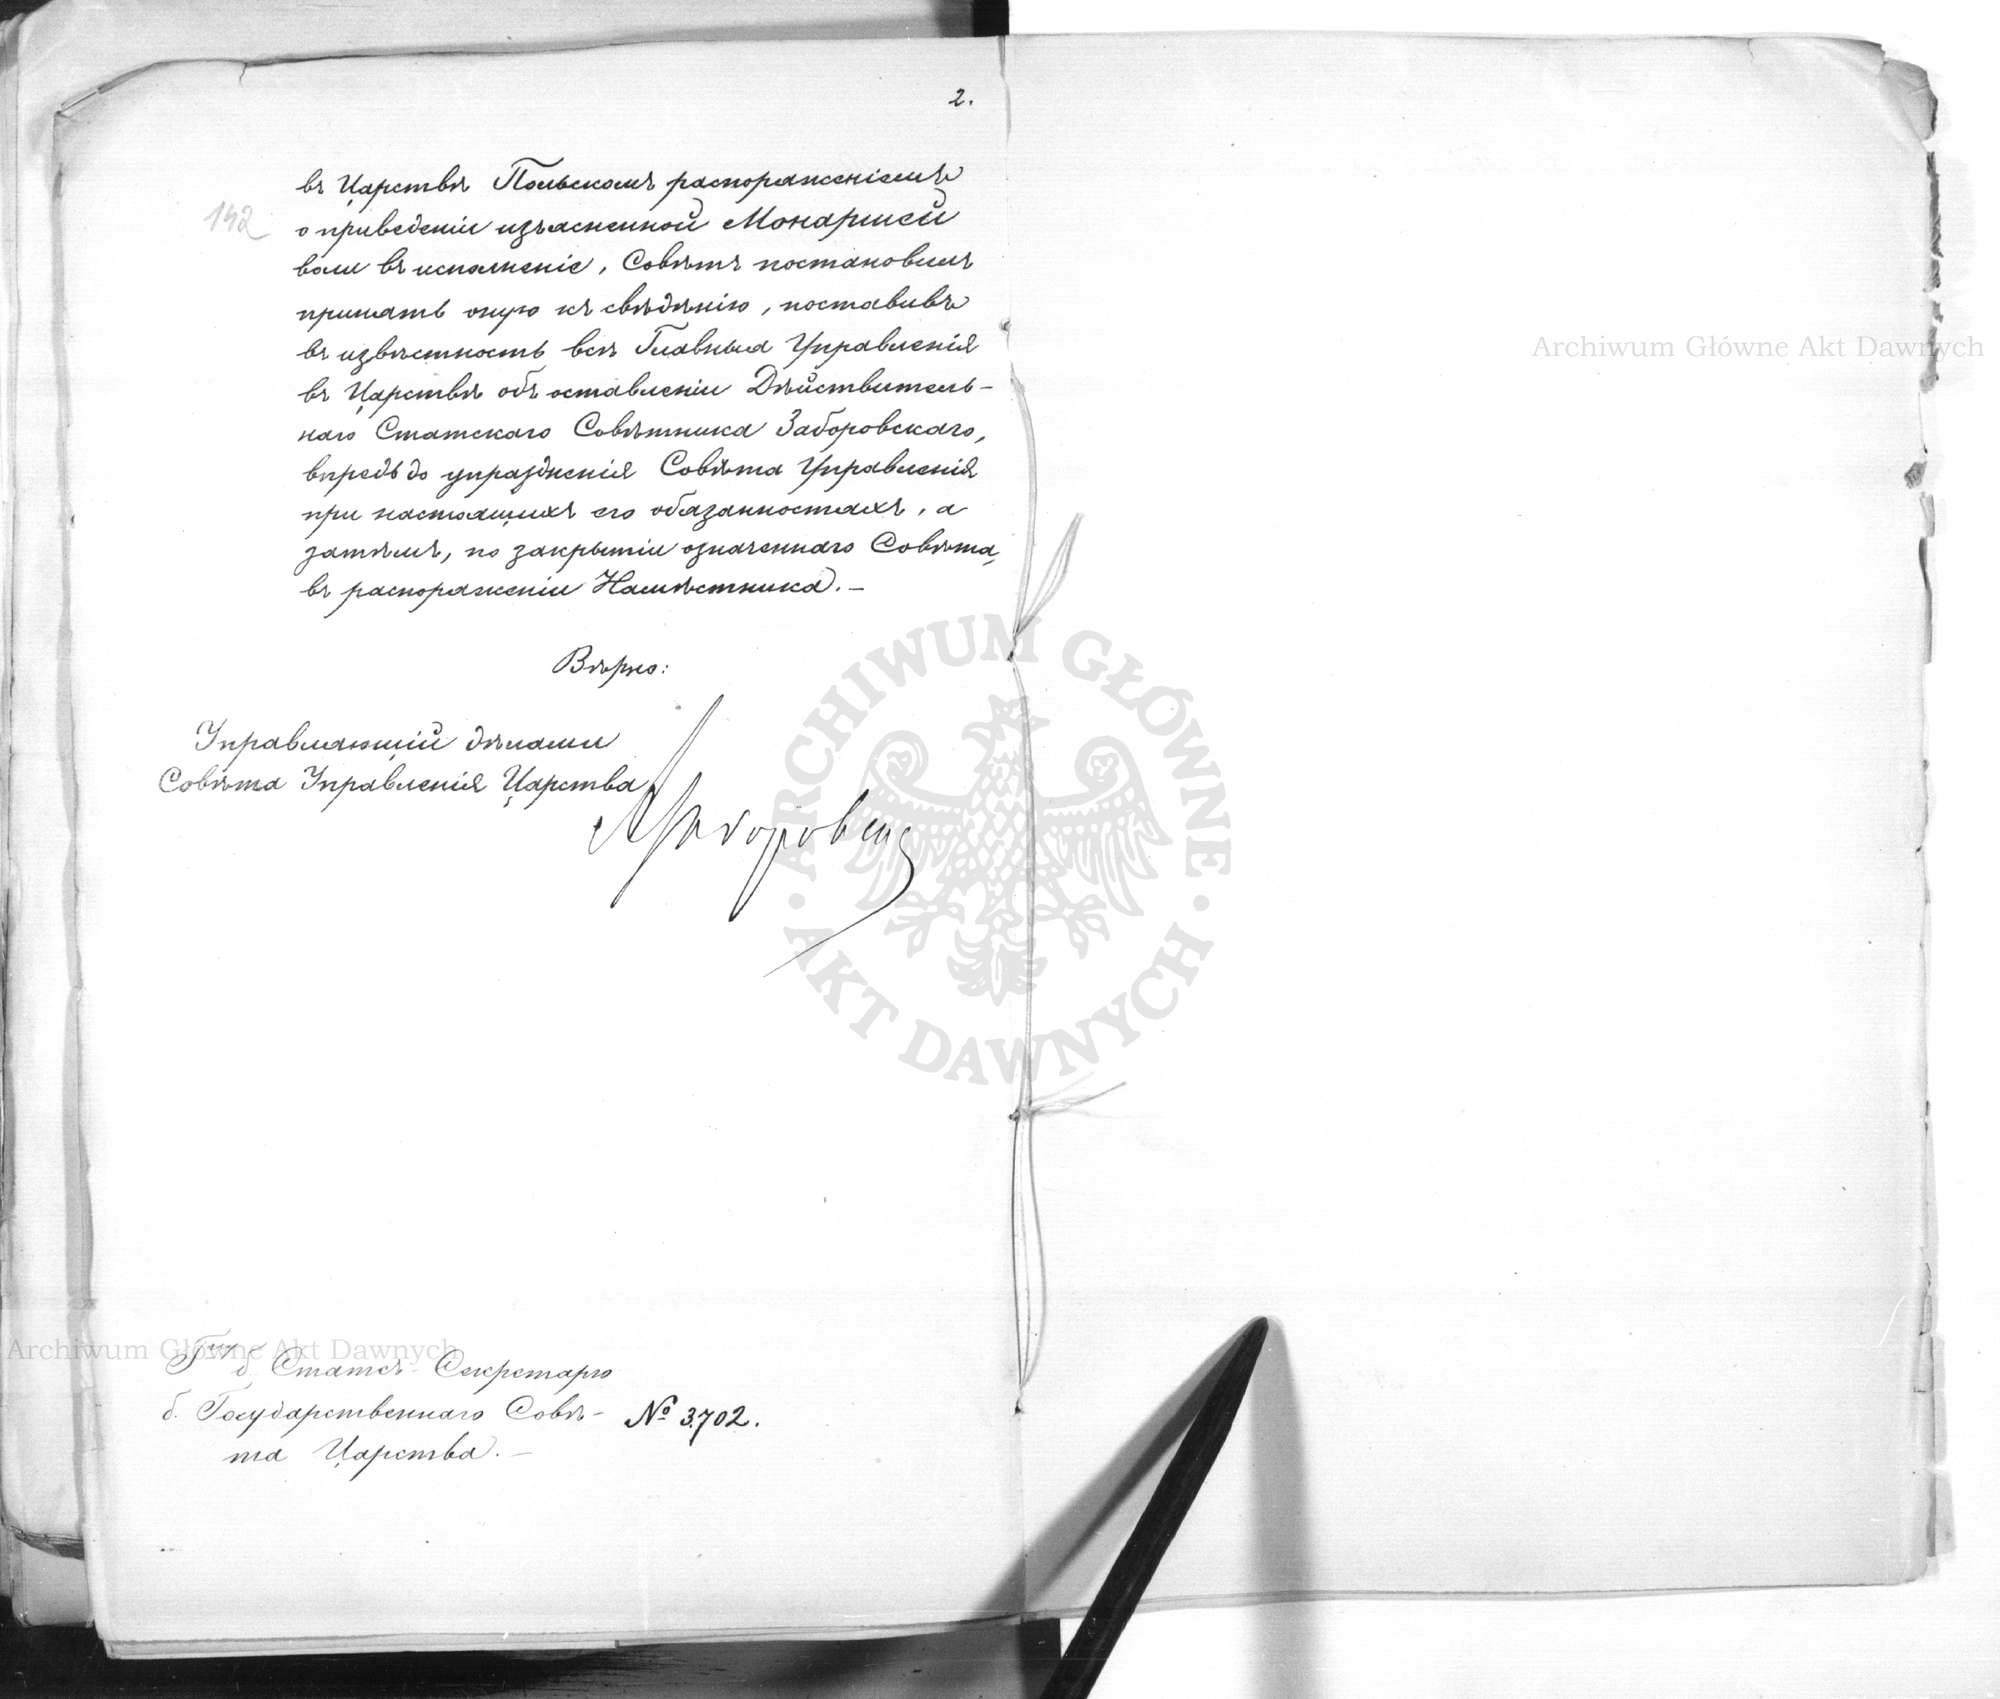 2.
142
въ Царствѣ Польскомъ распоряженіемъ
о приведеніи изъясненной Монаршей
воли въ исполненіе, Совѣтъ постановилъ
принять оную къ свѣдѣнію, поставивъ
въ извѣстность всѣ Главныя Управленія
въ Царствѣ объ оставленіи Дѣйствитель-
наго Статскаго Совѣтника Заборовскаго,
впредь до упраздненія Совѣта Управленія
при настоящихъ его обязанностяхъ, а
затѣмъ, по закрытіи означеннаго Совѣта,
въ распоряженіи Намѣстника. —
Вѣрно:
Управляющій дѣлами
Совѣта Управленія Царства
Archiwum Główne Akt Dawnych
ARCHIWUM GŁÓWNE
AKT DAWNYCH
Archiwum Główne Akt Dawnych
б. Статсъ-Секретарю
б. Государственнаго Совѣ-
та Царства. —
№ 3702.